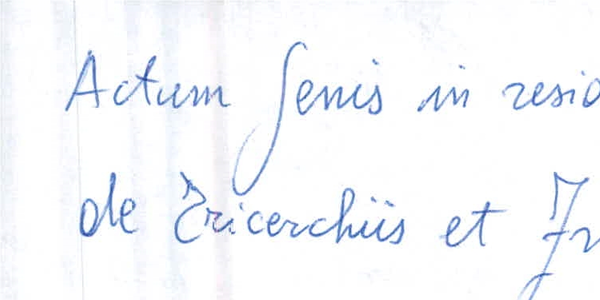 Actum Senis in resid
de Tricerchiis et Fr